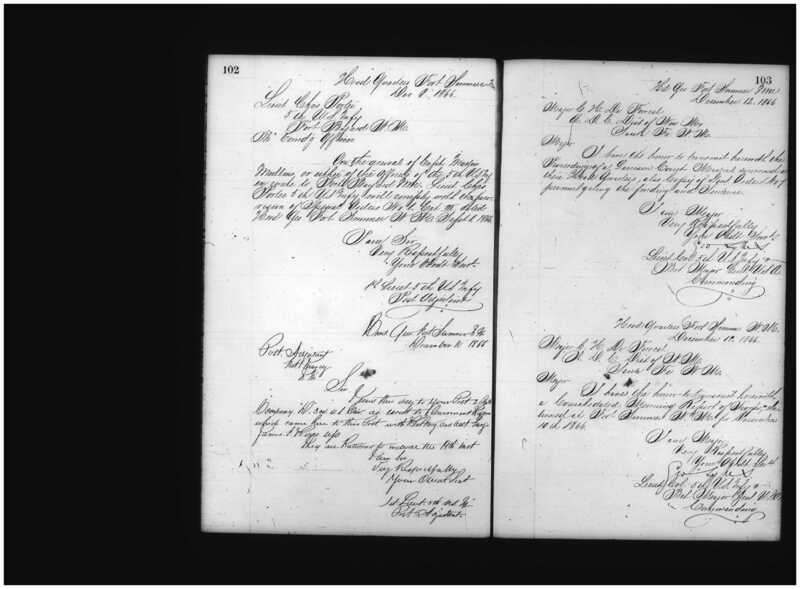 102
Head Quarters Fort Sumner
Dec 9. 1866.
Lieut Chas Porter
5th U.S. Infy
Fort Bayard N. M.
Officer
On the arrival of Capt
or either of the Officers of the 5th U.S. Infy
en route to Fort Bayard N.M. Lieut Chas
Porter 5th U.S. Infy will comply with the
of Special Orders No
Head Qrs Fort Sumner N. M. Sept
I am Sir
Very Respectfully
Your Obedt Servt
1st Lieut 5th U.S. Infy
Post Adjutant
Head Qrs Fort Sumner N. M.
December 10 1866
Post Adjutant
Sir
I send this day to your Post
Company
which came here to this Post with
They are Rationed to include the 15th inst
I am Sir
Very Respectfully
Your Obedient Servt
1st Lieut 5th U.S. Infy
Post Adjutant
103
Hd Qrs Fort Sumner N.M.
December 12. 1866
Major C. H. De Forrest
A. D. C. Dist of New Mex
Santa Fe N. M.
Major
I have the honor to transmit herewith the
Proceedings of a Garrison Court Martial convened at
these Head Quarters, also Copy of Genl Orders No
promulgating the finding and Sentence.
I am Major
Very Respectfully
Your Obdt Servt
Lieut Col 5th U.S. Infy
Bvt Major Genl U.S.A.
Commanding
Head Quarters Fort Sumner N. M.
December 12. 1866.
Major C. H. De Forrest
A. D. C. Dist of N. M.
Santa Fe N. M.
Major
I have the honor to transmit herewith
a Consolidated Morning Report of Troops
at Fort Sumner N. M. for
10th 1866.
I am Major
Very Respectfully
Your Obdt Servt
Lieut Col 5th U.S. Infy
Bvt Major Genl U.S.A.
Commanding